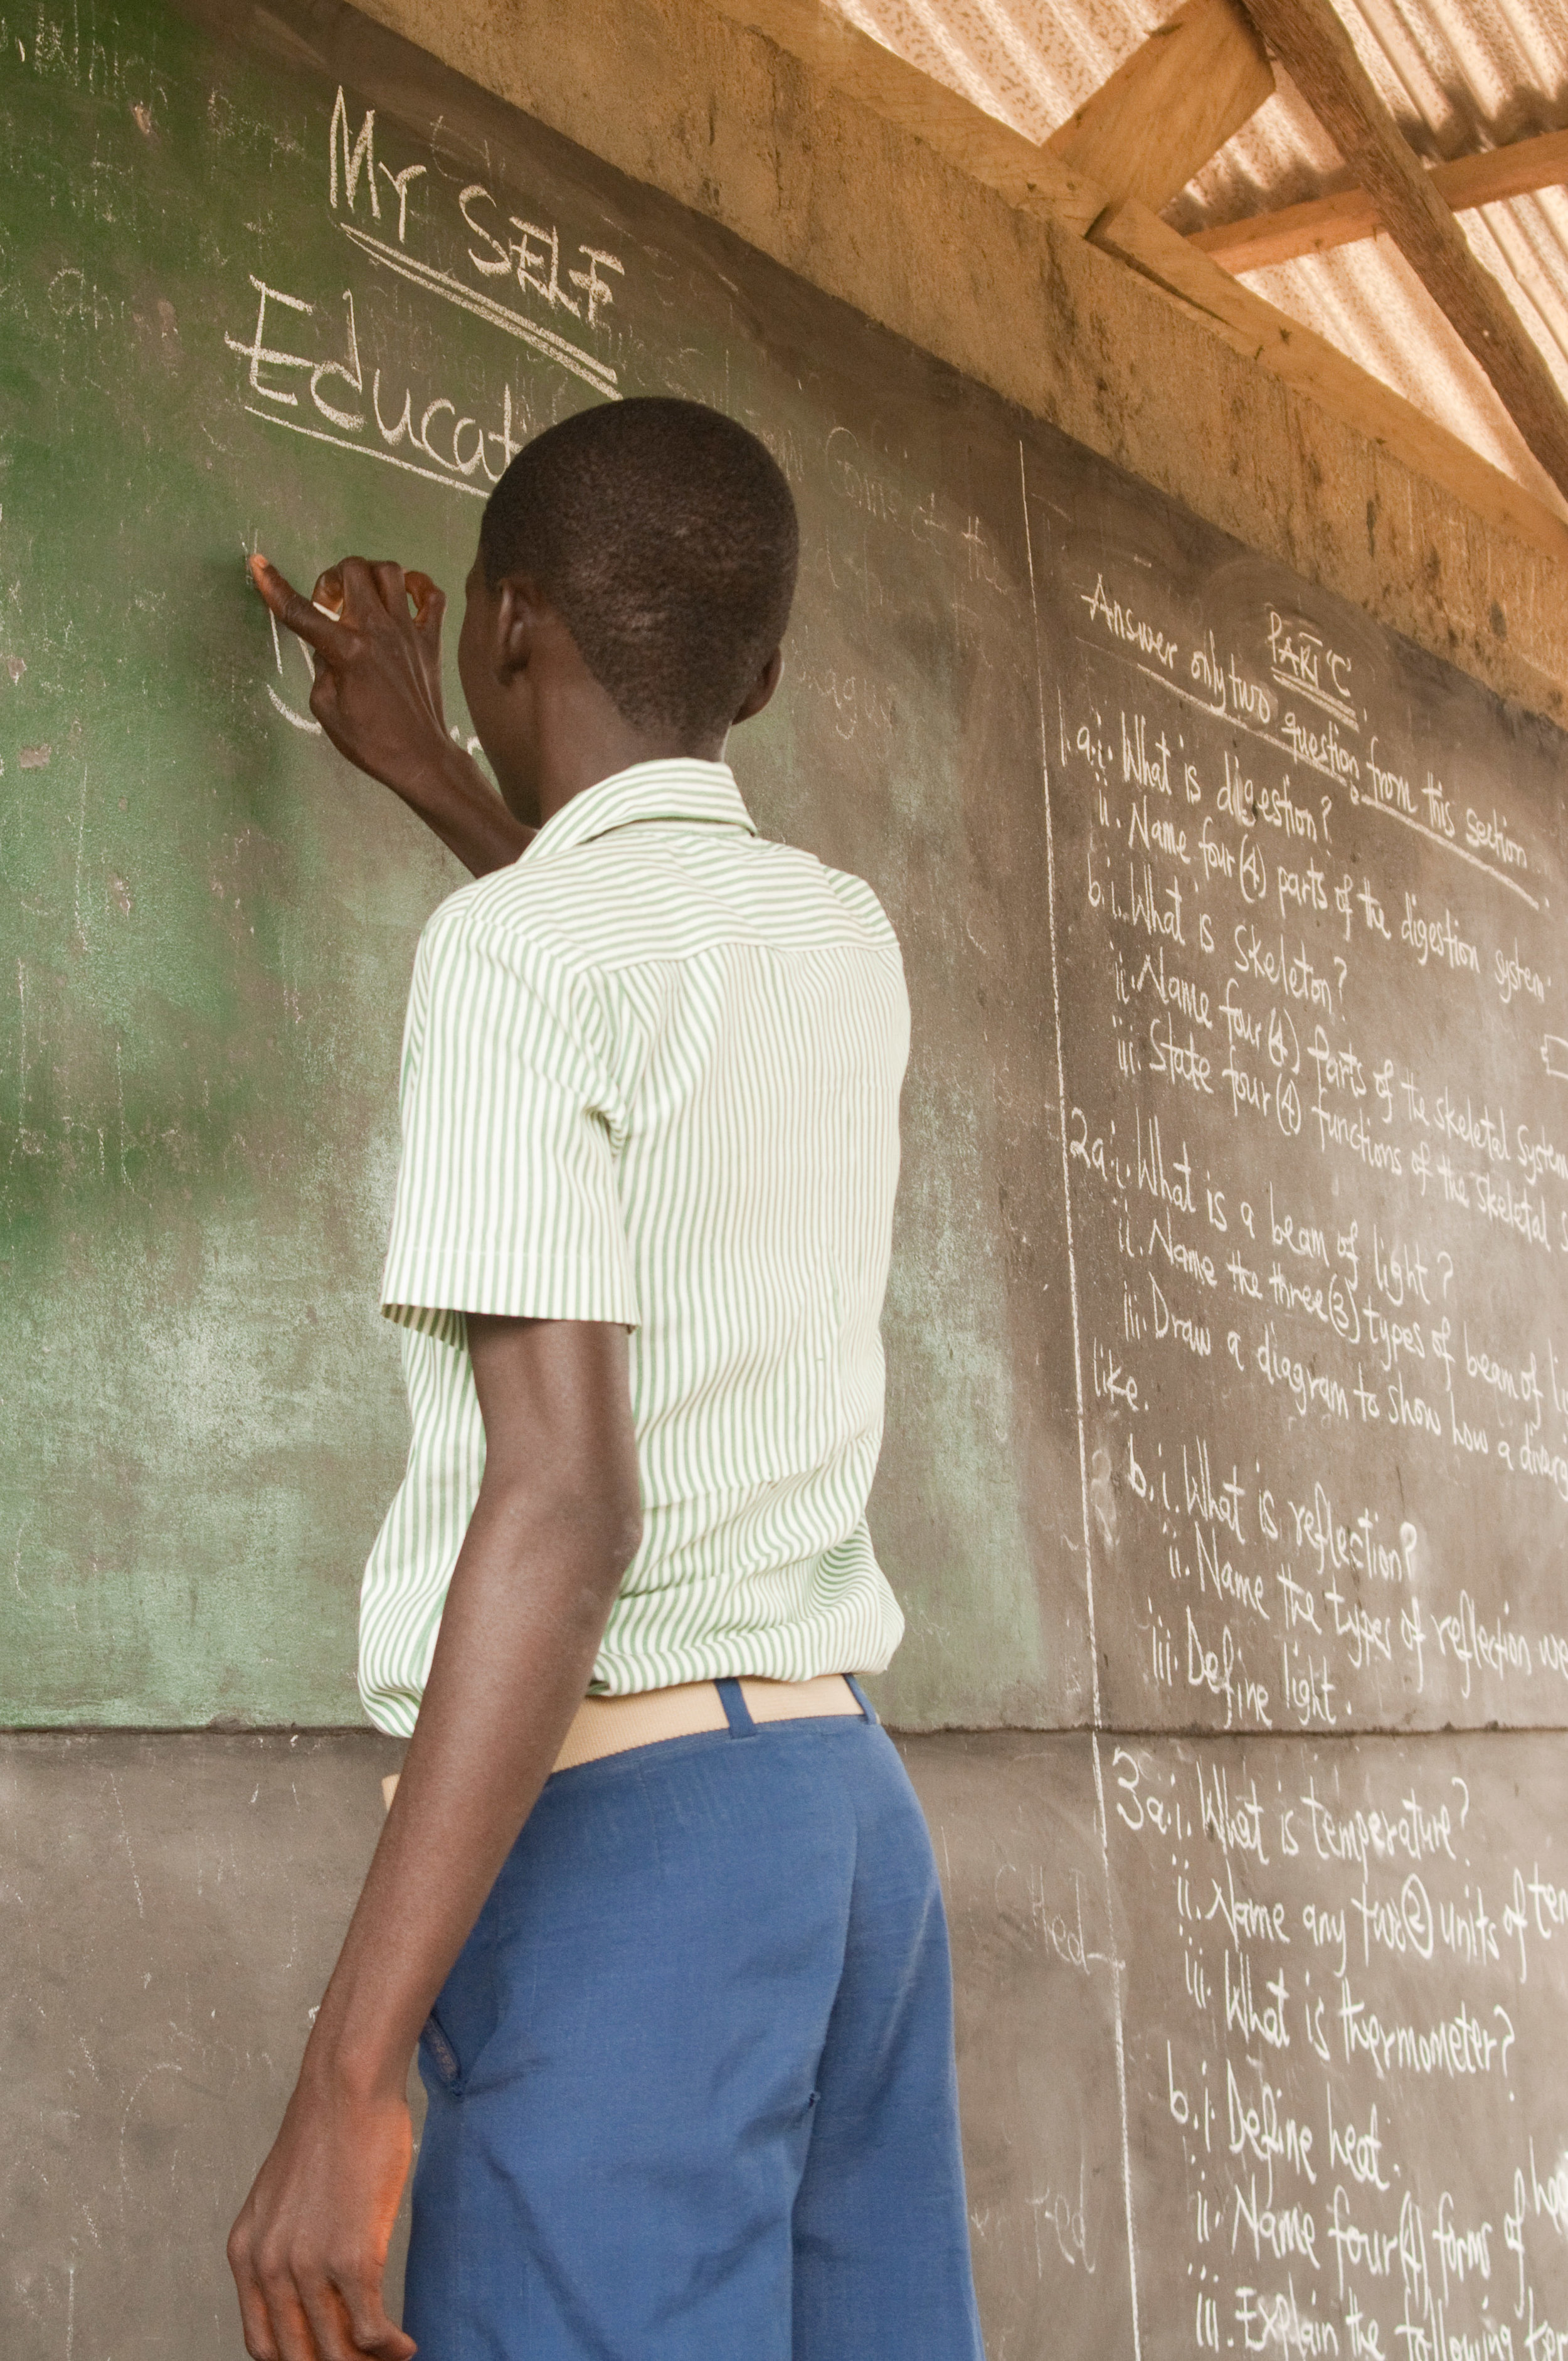 My SELF
Educat
PART 'C'
Answer only two question from this section.
1.a.i. What is digestion?
ii. Name four (4) parts of the digestion system
b.i. What is skeleton?
ii. Name four (4) parts of the skeletal system
iii. State four (4) functions of the skeletal s
2a.i. What is a beam of light?
ii. Name the three (3) types of beam of li
iii. Draw a diagram to show how a diverg
like.
b.i. What is reflection?
ii. Name the types of reflection we
iii. Define light.
3a.i. What is temperature?
ii. Name any two (2) units of te
iii. What is thermometer?
b.i Define heat.
ii. Name four (4) forms of hea
iii. Explain the following ter